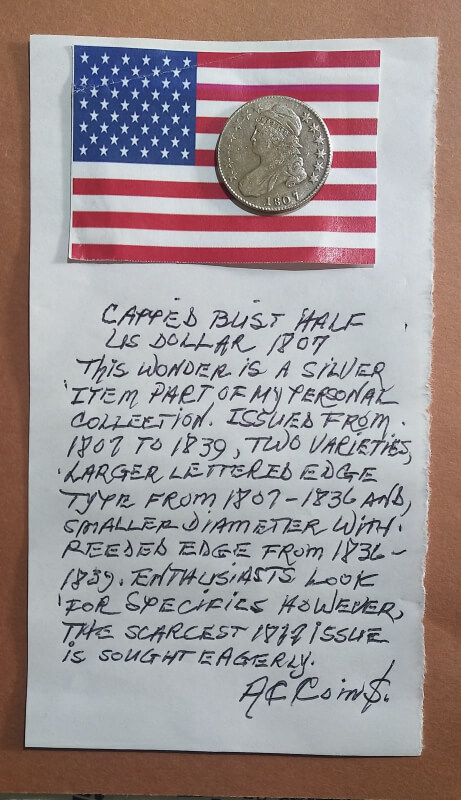 1807
CAPPED BUST HALF
US DOLLAR 1807
THIS WONDER IS A SILVER
ITEM PART OF MY PERSONAL
COLLECTION. ISSUED FROM
1807 TO 1839, TWO VARIETIES,
LARGER LETTERED EDGE
TYPE FROM 1807-1836 AND,
SMALLER DIAMETER WITH
REEDED EDGE FROM 1836-
1839. ENTHUSIASTS LOOK
FOR SPECIFICS HOWEVER,
THE SCARCEST ISSUE
IS SOUGHT EAGERLY.
AC Coin$.